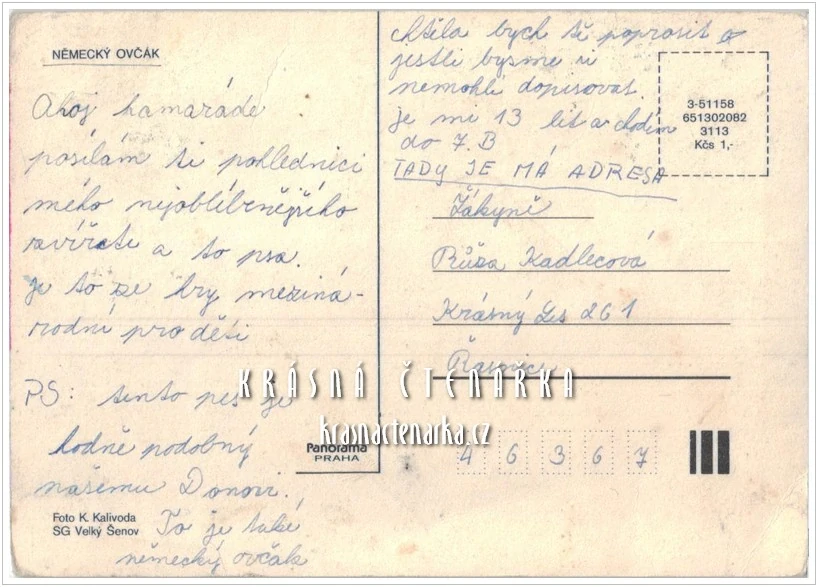 NĚMECKÝ OVČÁK
Ahoj kamaráde
posílám ti pohlednici
mého nejoblíbenějšího
zvířete a to psa.
je to ze hry meziná-
rodní pro děti
PS: tento pes je
hodně podobný
našemu Donovi.
To je také
německý ovčák
Foto K. Kalivoda
SG Velký Šenov
Panorama
PRAHA
chtěla bych tě poprosit o
jestli bysme si
nemohli dopisovat.
je mi 13 let a chodím
do 7.B
TADY JE MÁ ADRESA
3-51158
651302082
3113
Kčs 1,-
Žákyně
Růža Kadlecová
Krásný Les 261
Raspnice
KRÁSNÁ ČTENÁŘKA
krasnactenarka.cz
4 6 3 6 7